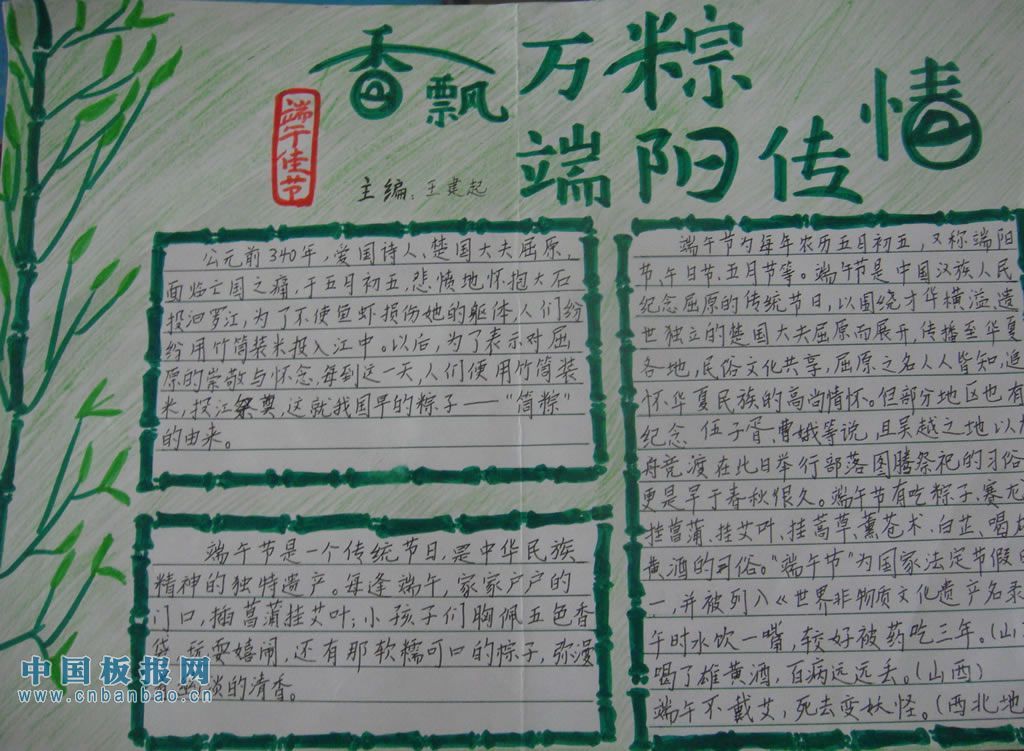 香飘万粽
端阳传情
端午佳节
主编：王建起
公元前340年，爱国诗人、楚国大夫屈原，
面临亡国之痛，于五月初五，悲愤地怀抱大石
投汨罗江，为了不使鱼虾损伤她的躯体，人们纷
纷用竹筒装米投入江中。以后，为了表示对屈
原的崇敬与怀念，每到这一天，人们便用竹筒装
米，投江祭奠，这就我国早的粽子——“筒粽”
的由来。
端午节是一个传统节日，是中华民族
精神的独特遗产。每逢端午，家家户户的
门口，插菖蒲挂艾叶；小孩子们胸佩五色香
袋，玩耍嬉闹，还有那软糯可口的粽子，弥漫
淡的清香。
端午节为每年农历五月初五，又称端阳
节、午日节、五月节等。端午节是中国汉族人民
纪念屈原的传统节日，以围绕才华横溢、遗
世独立的楚国大夫屈原而展开，传播至华夏
各地，民俗文化共享，屈原之名人人皆知，追
怀华夏民族的高尚情怀。但部分地区也有
纪念伍子胥、曹娥等说，且吴越之地以龙
舟竞渡在此日举行部落图腾祭祀的习俗
更是早于春秋很久。端午节有吃粽子、赛龙
挂菖蒲、挂艾叶、挂蒿草、薰苍术、白芷、喝雄
黄酒的习俗。“端午节”为国家法定节假日
一，并被列入《世界非物质文化遗产名录
午时水饮一嘴，较好被药吃三年。（山
喝了雄黄酒，百病远远丢。（山西）
端午不戴艾，死去变妖怪。（西北地
中国板报网
www.cnbanbao.cn